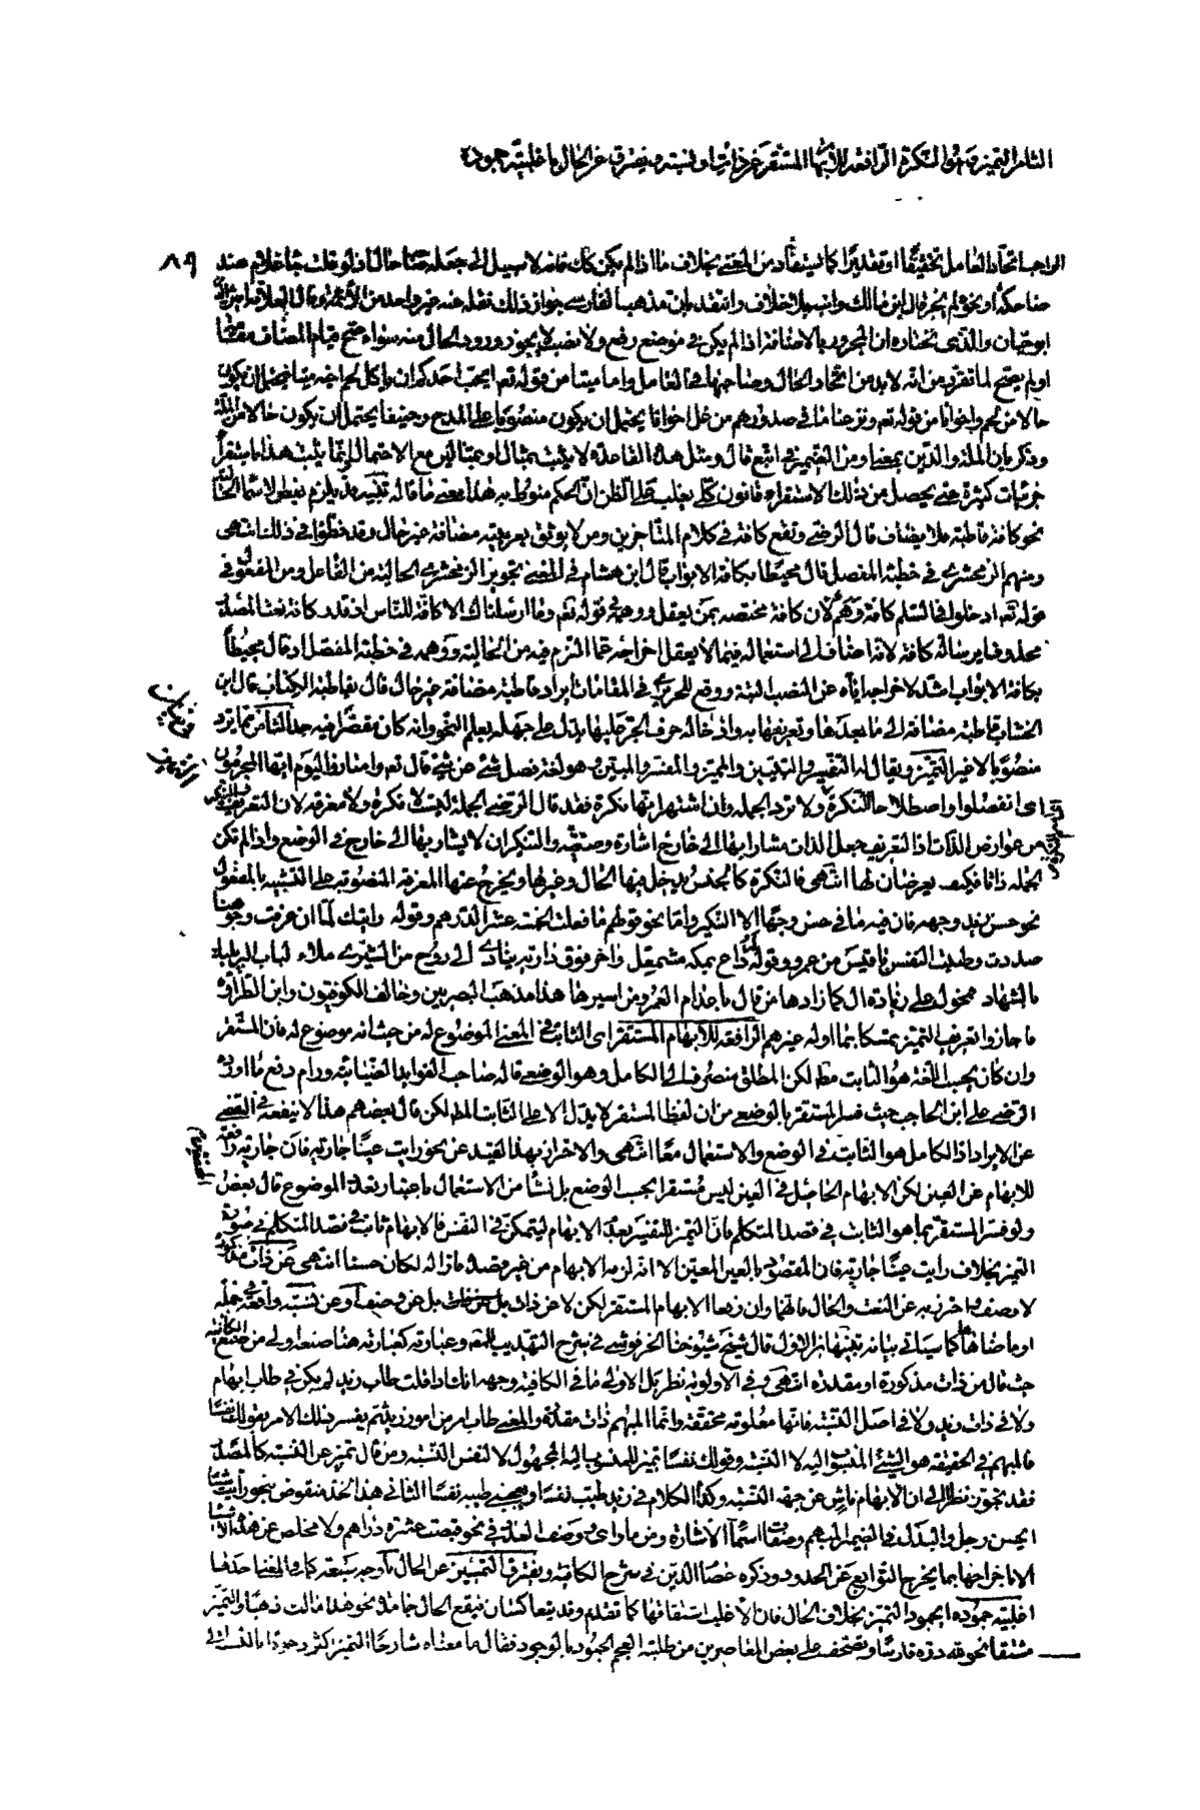 الثامن التميز وهو النكرة الرافعة للأبهام المستقر عن ذات او نسبة ويفترق عن الحال باغلبية جموده
٨٩
الواجب اتحاد العامل تحقيقًا او تقديرًا كما يستفاد من المغني بخلاف ما اذا لم يكن كك فانه لا سبيل الى جعله حالا اذ لو قلت جاء غلام هند
ضاحكة او نحوه لم يجز قال ابن مالك وابنه بلا خلاف وانتقد بان مذهب الفارسي جواز ذلك نقله عنه غير واحد من الأئمة وقال العلامة
ابو حيان والذي نختاره ان المجرور بالاضافة اذا لم يكن في موضع رفع ولا نصب لا يجوز ورود الحال منه سواء صح قيام المضاف مقامه
او لم يصح لما تقرر من انه لا بد من اتحاد الحال وصاحبها في العامل واما ميتا من قوله تعم ايحب احدكم ان ياكل لحم اخيه ميتا فيحتمل ان يكون
حالا من لحم واخوانا من قوله تعم ونزعنا ما في صدورهم من غل اخوانا يحتمل ان يكون منصوبا على المدح وحنيفا يحتمل ان يكون حالا من الملة
وذكر بان الملة والدين بمعنى او من الضمير في اتبع قال ومثل هذه القاعدة لا يثبت بمثال او بمثالين مع الاحتمال انما يثبت هذا باستقراء
جزئيات كثيرة حتى يحصل من ذلك الاستقراء قانون كلي يغلب على الظن ان الحكم منوط به هذا معنى ما قاله تنبيه قد يلزم بعض الاسماء الحالية
نحو كافة قاطبة فلا يضاف قال الرضي وتقع كافة في كلام المتأخرين ومن لا يوثق بعربيته مضافة غير حال وقد خطؤا في ذلك انتهى
ومنهم الزمخشري في خطبة المفصل قال محيطا بكافة الابواب قال ابن هشام في المغني تجويز الزمخشري الحالية من الفاعل ومن المفعول في
قوله تعم ادخلوا في السلم كافة وهم لان كافة مختصة بمن يعقل ووهمه في قوله تعم وما ارسلناك الا كافة للناس اذ قدر كافة نعتا لمصدر
محذوف اي رسالة كافة لانه اضاف الى استعماله فيما لا يعقل اخراجه عما التزم فيه من الحالية ووهمه في خطبة المفصل اذ قال محيطًا
بكافة الابواب اشد لاخراجه اياه عن النصب البتة ووقع للحريري في المقامات ايراد قاطبة مضافة غير حال قال بقاطبة الكتاب قال ابن
الخشاب قاطبة مضافة الى ما بعدها وتعريفها به وادخاله حرف الجر عليها يدل على جهله بعلم النحو وانه كان مقصرا فيه جدا الثامن مما يرد
منصوبا لا غير التميز ويقال له التفسير والتبيين والمميز والمفسر والمبين وهو لغة فصل شئ عن شئ قال تعم وامتازوا اليوم ايها المجرمون
اي انفصلوا واصطلاحا النكرة ولا ترد الجملة وان اشتهر انها نكرة فقد قال الرضي الجملة ليست نكرة ولا معرفة لان التعريف والتنكير
من عوارض الذات اذ التعريف جعل الذات مشارا بها الى خارج اشارة وضعية والتنكير ان لا يشار بها الى خارج في الوضع واذا لم تكن
الجملة ذاتا فكيف يعرضان لها انتهى فالنكرة كالجنس يدخل فيها الحال وغيرها ويخرج عنها المعرفة المنصوبة على التشبيه بالمفعول
نحو حسن زيد وجهه فان فيه ما في حسن وجها الا التنكير واما نحو قولهم ما فعلت الخمسة عشر الدرهم وقوله رايتك لما ان عرفت وجوهنا
صددت وطبت النفس يا قيس عن عمرو وقوله له داع بمكة مشمعل واخر فوق دارته ينادي الى ردح من الشيزى ملاء لباب البر يلبك
بالشهاد محمول على زيادة ال كما زادها من قال باعد ام العمرو من اسيرها هذا مذهب البصريين وخالف الكوفيون وابن الطراوة
فاجازوا تعريف التميز تمسكا بما اوله غيرهم الرافعة للأبهام المستقر اي الثابت في المعنى الموضوع له من حيث انه موضوع له فان المستقر
وان كان بحسب اللغة هو الثابت مط لكن المطلق منصرف الى الكامل وهو الوضعي قاله صاحب الفوايد الضيائية ورام دفع ما اورده
الرضي على ابن الحاجب حيث فسر المستقر بالوضعي من ان لفظ المستقر لا يدل الا على الثابت المط لكن قال بعضهم هذا لا ينفعه في التقصي
عن الايراد اذ الكامل هو الثابت في الوضع والاستعمال معًا انتهى والاحتراز بهذا القيد عن نحو رايت عينًا جارية فان جارية رافعة
للابهام عن العين لكن الابهام الحاصل في العين ليس مستقرا بحسب الوضع بل نشأ من الاستعمال باعتبار تعدد الموضوع قال بعض
ولو فسر المستقر بما هو الثابت في قصد المتكلم فان التميز للتفسير بعد الابهام ليتمكن في النفس فالابهام ثابت في قصد المتكلم في صورة
التميز بخلاف رايت عينًا جارية فان المقصود بالعين المعين الا انه لزمه الابهام من غير قصد فازاله لكان حسنا انتهى عن ذات مذكورة
لا وصف واحترز به عن النعت والحال فانهما وان رفعا الابهام المستقر لكن لا عن ذات بل عن وصف او عن نسبة واقعة في جملة
او ما ضاهاها كما سياتي بيانه تبيهان الاول قال شيخ شيوخنا الحرفوشي في شرح التهذيب للمص وعبارته كعبارته هنا صنعه اولى من صنع الكافية
حيث قال من ذات مذكورة او مقدرة انتهى وفي الاولوية نظر بل الاولى ما في الكافية وجهه انك اذا قلت طاب زيد لم يكن في طاب ابهام
ولا في ذات زيد ولا في اصل النسبة فانها معلومة محققة وانما المبهم ذات مقدرة والمعنى طاب امر من امور زيد ثم يفسر ذلك الامر بقولك نفسًا
فالمبهم في الحقيقة هو الشئ المنسوب اليه لا النسبة وقولك نفسًا تميز للمنسوب اليه المجهول لا لنفس النسبة ومن قال تميز عن النسبة كالمصنف
فقد تجوز نظرا الى ان الابهام ناش عن جهة النسبة وكذا الكلام في زيد طيب نفسًا ويعجبني طيبه نفسًا الثاني هذا الحد منقوض بنحو رايت شيئًا
الا باخراجها بما يخرج التوابع عن الحدود وذكره عصام الدين في شرح الكافية ويفترق التميز عن الحال باوجه سبعة كما في المغني احدها
اغلبية جموده اي جمود التميز بخلاف الحال فان الاغلب اشتقاقها كما تقدم وقد يتعاكسان فيقع الحال جامدة نحو هذا مالك ذهبًا والتميز
مشتقا نحو لله دره فارسًا وتصحف على بعض المعاصرين من طلبة العجم الجمود بالوجود فقال ما معناه شارحًا التميز اكثر وجودًا بالنسبة الى